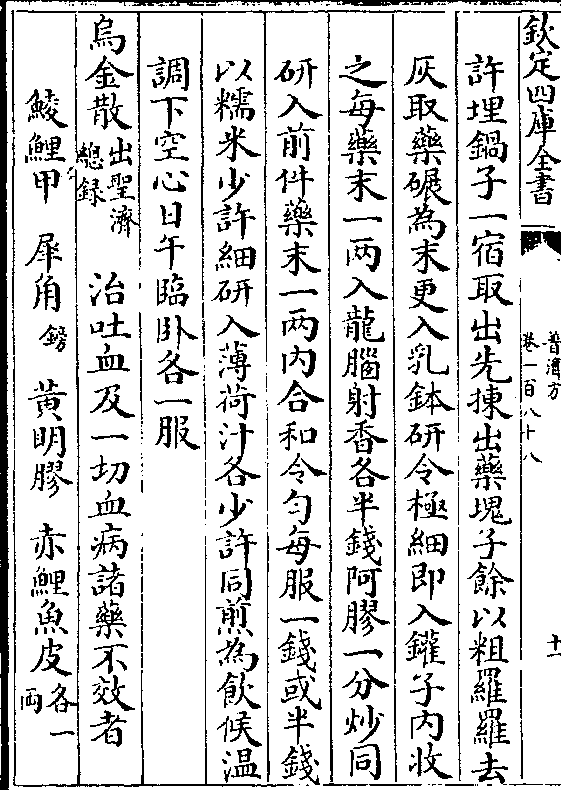 欽定四庫全書
普濟方
卷一百八十八
十一
許埋鍋子一宿取出先揀出藥塊子餘以粗羅羅去
灰取藥碾為末更入乳鉢研令極細即入鑵子內收
之每藥末一两入龍腦射香各半錢阿膠一分炒同
研入前件藥末一两內合和令匀每服一錢或半錢
以糯米少許細研入薄荷汁各少許同煎為飲候温
調下空心日午臨卧各一服
烏金散出聖濟總録 治吐血及一切血病諸藥不效者
鯪鯉甲 犀角鎊 黄明膠 赤鯉魚皮各一两